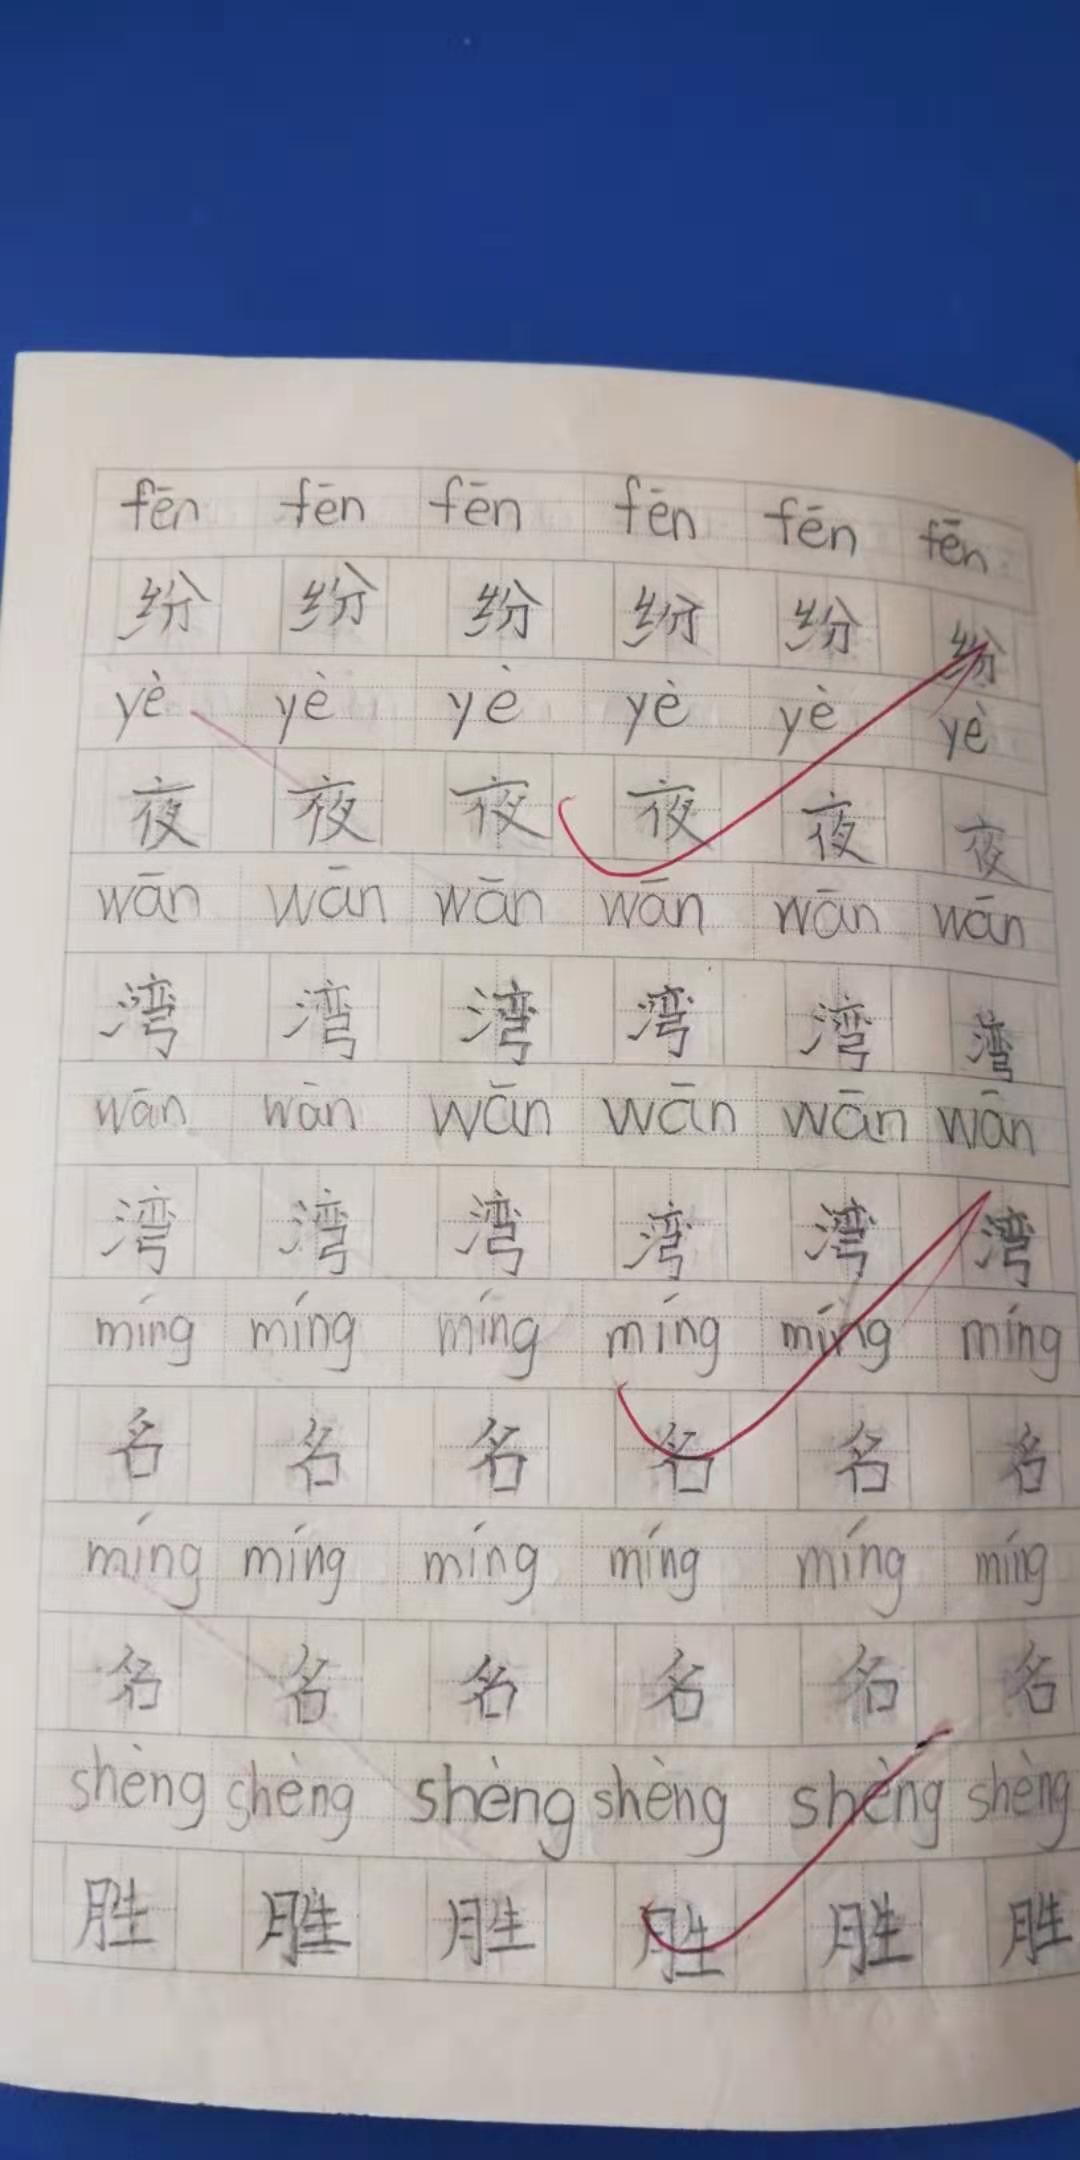 fēn fēn fēn fēn fēn fēn
纷 纷 纷 纷 纷 纷
yè yè yè yè yè yè
夜 夜 夜 夜 夜 夜
wān wān wān wān wān wān
湾 湾 湾 湾 湾 湾
wān wān wān wān wān wān
湾 湾 湾 湾 湾 湾
míng míng míng míng míng míng
名 名 名 名 名 名
míng míng míng míng míng míng
名 名 名 名 名 名
shèng shèng shèng shèng shèng shèng
胜 胜 胜 胜 胜 胜